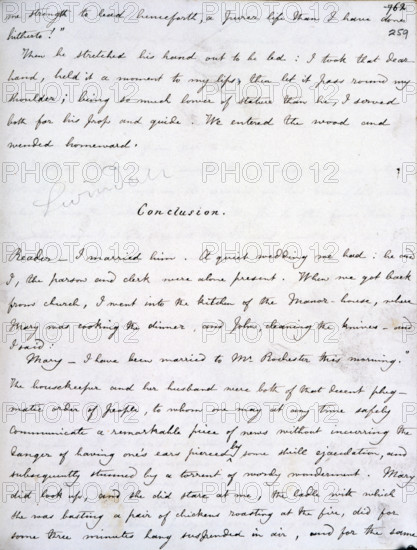 962
me strength to lead henceforth, a purer life than I have done
259
hitherto!"
Then he stretched his hand out to be led: I took that dear
hand, held it a moment to my lips, then let it pass round my
shoulder; being so much lower of stature than he, I served
both for his prop and guide. We entered the wood and
wended homeward.
Conclusion.
Reader — I married him. A quiet wedding we had: he and
I, the parson and clerk were alone present. When we got back
from church, I went into the kitchen of the Manor-house, where
Mary was cooking the dinner, and John, cleaning the knives — and
I said:
Mary — I have been married to Mr Rochester this morning."
The housekeeper and her husband were both of that decent phleg-
matic order of people, to whom one may at any time safely
communicate a remarkable piece of news without incurring the
danger of having one's ears pierced by some shrill ejaculation, and
subsequently stunned by a torrent of wordy wonderment. Mary
did look up, and she did stare at me, the ladle with which
she was basting a pair of chickens roasting at the fire, did for
some three minutes hang suspended in air, and for the same
PHOTO12